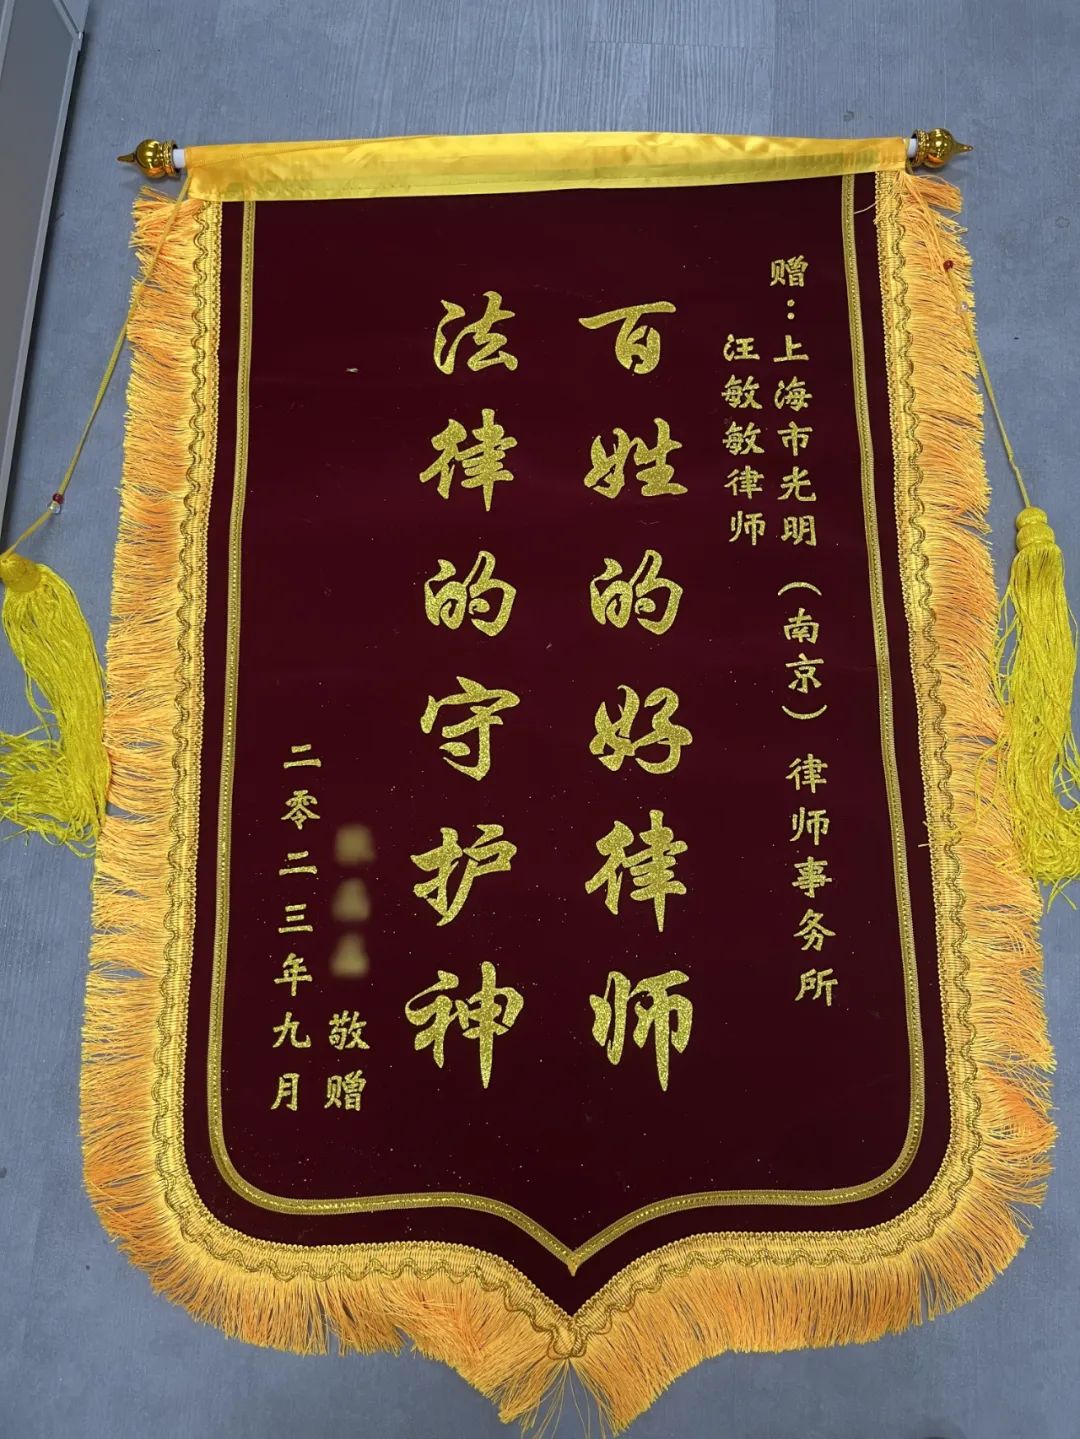 赠：上海市光明（南京）律师事务所
汪敏敏律师
百姓的好律师
法律的守护神
敬赠
二零二三年九月